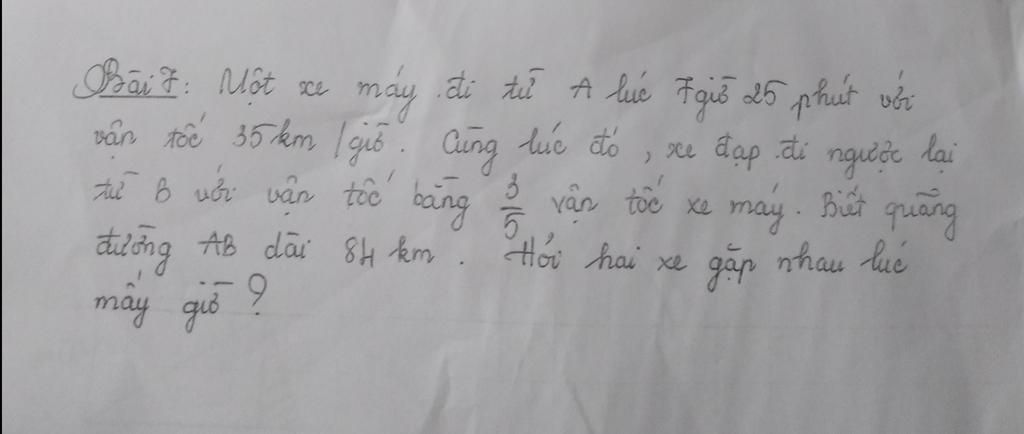 Bài 7: Một xe máy đi từ A lúc 7 giờ 25 phút với
vận tốc 35 km / giờ. Cùng lúc đó, xe đạp đi ngược lại
từ B với vận tốc bằng 3/5 vận tốc xe máy. Biết quãng
đường AB dài 84 km. Hỏi hai xe gặp nhau lúc
mấy giờ?